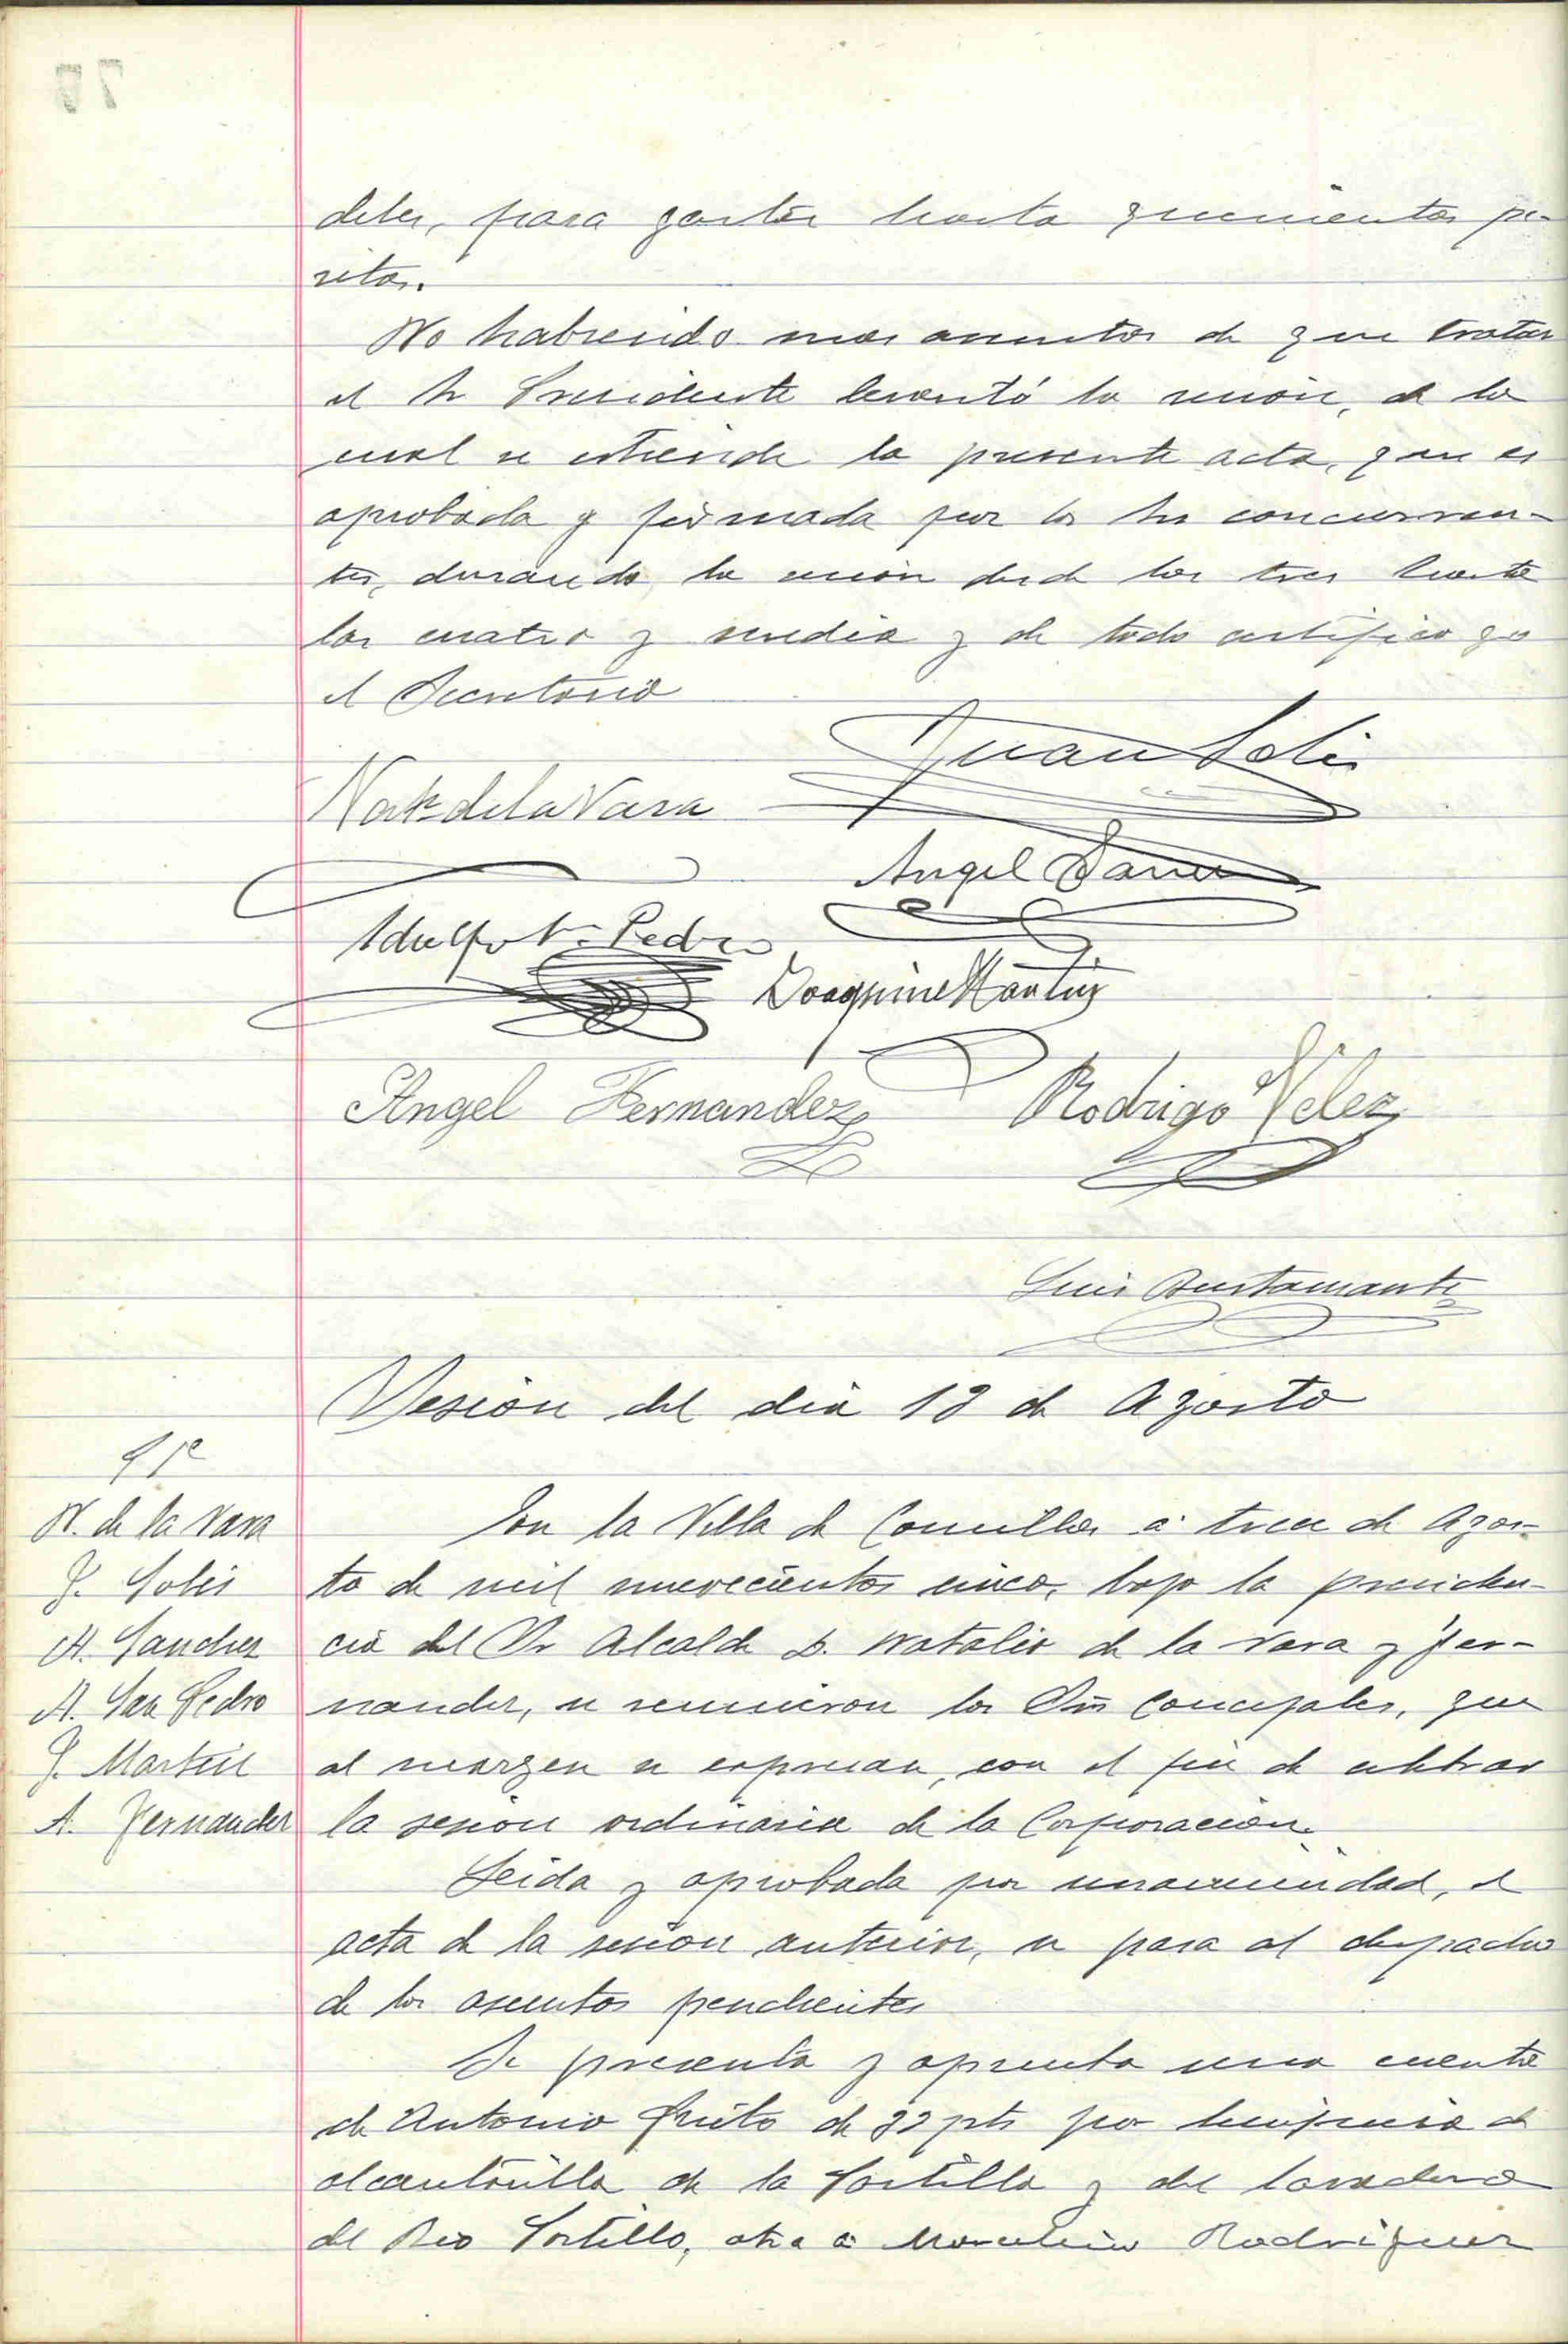 deber, para gastar hasta quinientas pe-
setas.
No habiendo mas asuntos de que tratar
el Sr Presidente levantó la sesion, de la
cual se estiende la presente acta, que es
aprobada y firmada por los Srs concurren-
tes, durando la sesion desde las tres hasta
las cuatro y media y de todo certifico yo
el Secretario
Juan Solis
Nat. de la Vara
Angel
Adolfo S. Pedro
Joaquin Martin
Angel Fernandez
Rodrigo Velez
Luis Bustamante
Sesion del dia 13 de Agosto
N. de la Vara
J. Solis
A. Sanchez
A. San Pedro
J. Martin
A. Fernandez
En la Villa de Comillas a trece de Agos-
to de mil novecientos cinco, bajo la presiden-
cia del Sr Alcalde D. Natalio de la Vara y Fer-
nandez, se reunieron los Srs Concejales, que
al margen se expresan, con el fin de celebrar
la sesion ordinaria de la Corporacion.
Leida y aprobada por unanimidad, el
acta de la sesion anterior, se pasa al despacho
de los asuntos pendientes
Se presenta y aprueba una cuenta
de Antonio de pts por limpieza de
alcantarilla de la Portilla y del lavadero
del Rio Portillo, otra a Rodriguez